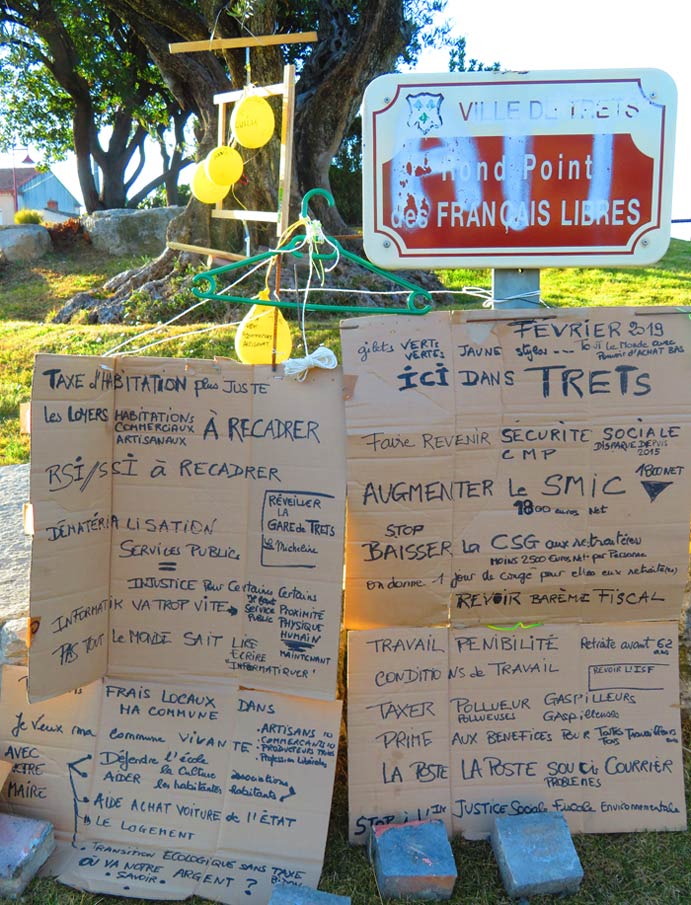 VILLE DE TRETS
Rond Point
des FRANÇAIS LIBRES
FÉVRIER 2019
gilets VERTE JAUNE stylos ... To Ji Le Monde avec
VERTES Pouvoir d'ACHAT BAS
ici DANS TRETS
Faire REVENIR SÉCURITÉ SOCIALE
CMP DISPARUE DEPUIS
2015
1800 NET
AUGMENTER le SMIC
1800 euros Net
STOP
BAISSER la CSG aux retraités
MOINS 2500 Euros Net par Personne
on donne 1 jour de congé pour elles aux retraités
REVOIR BARÈME FISCAL
TAXE d'HABITATION plus JUSTE
les LOYERS HABITATIONS
COMMERCIAUX À RECADRER
ARTISANAUX
RSI/SSI à RECADRER
RÉVEILLER
LA
GARE de TRETS
la Micheline
DÉMATÉRIALISATION
SERVICES PUBLICS
=
INJUSTICE Pour Certains Certains
INFORMATIK VA TROP VITE
Service PROXIMITÉ
PUBLIC PHYSIQUE
HUMAIN
MAINTENANT
PAS TOUT LE MONDE SAIT LIRE
ÉCRIRE
"INFORMATIQUER"
TRAVAIL PENIBILITÉ Retraite avant 62
ans
CONDITIONS de TRAVAIL REVOIR L'ISF
TAXER POLLUEUR GASPILLEURS
POLLUEUSES GASPILLEUSES
PRIME AUX BENEFICES POUR TOUTES Travailleurs
TOUS
LA POSTE LA POSTE SOUCIS COURRIER
PROBLÈMES
STOP à L'INJUSTICE Sociale Fiscale Environnementale
FRAIS LOCAUX DANS
MA COMMUNE
Je veux ma commune VIVANTE
. ARTISANS
. COMMERCANTS
. PRODUCTEURS
. Profession Libérales
AVEC
NOTRE
MAIRE
Défendre l'école associations
AIDER la Culture habitants
les habitants
AIDE ACHAT VOITURE de l'ÉTAT
LE LOGEMENT
TRANSITION ECOLOGIQUE SANS TAXE
OÙ VA NOTRE ARGENT ?
SAVOIR